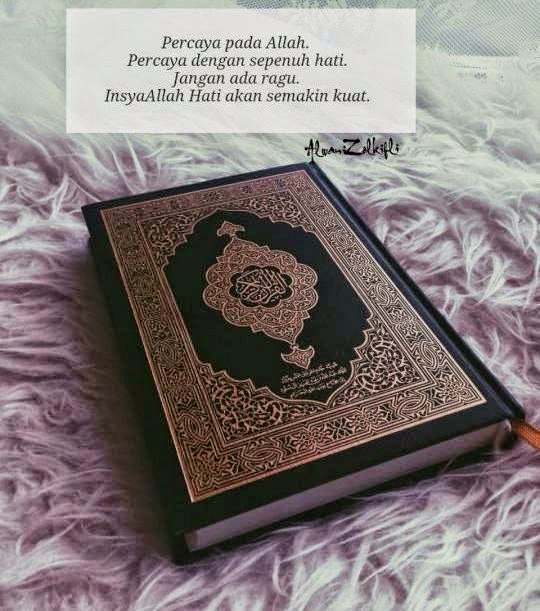 Percaya pada Allah.
Percaya dengan sepenuh hati.
Jangan ada ragu.
InsyaAllah Hati akan semakin kuat.
AlwaniZolkifli
القرآن الكريم